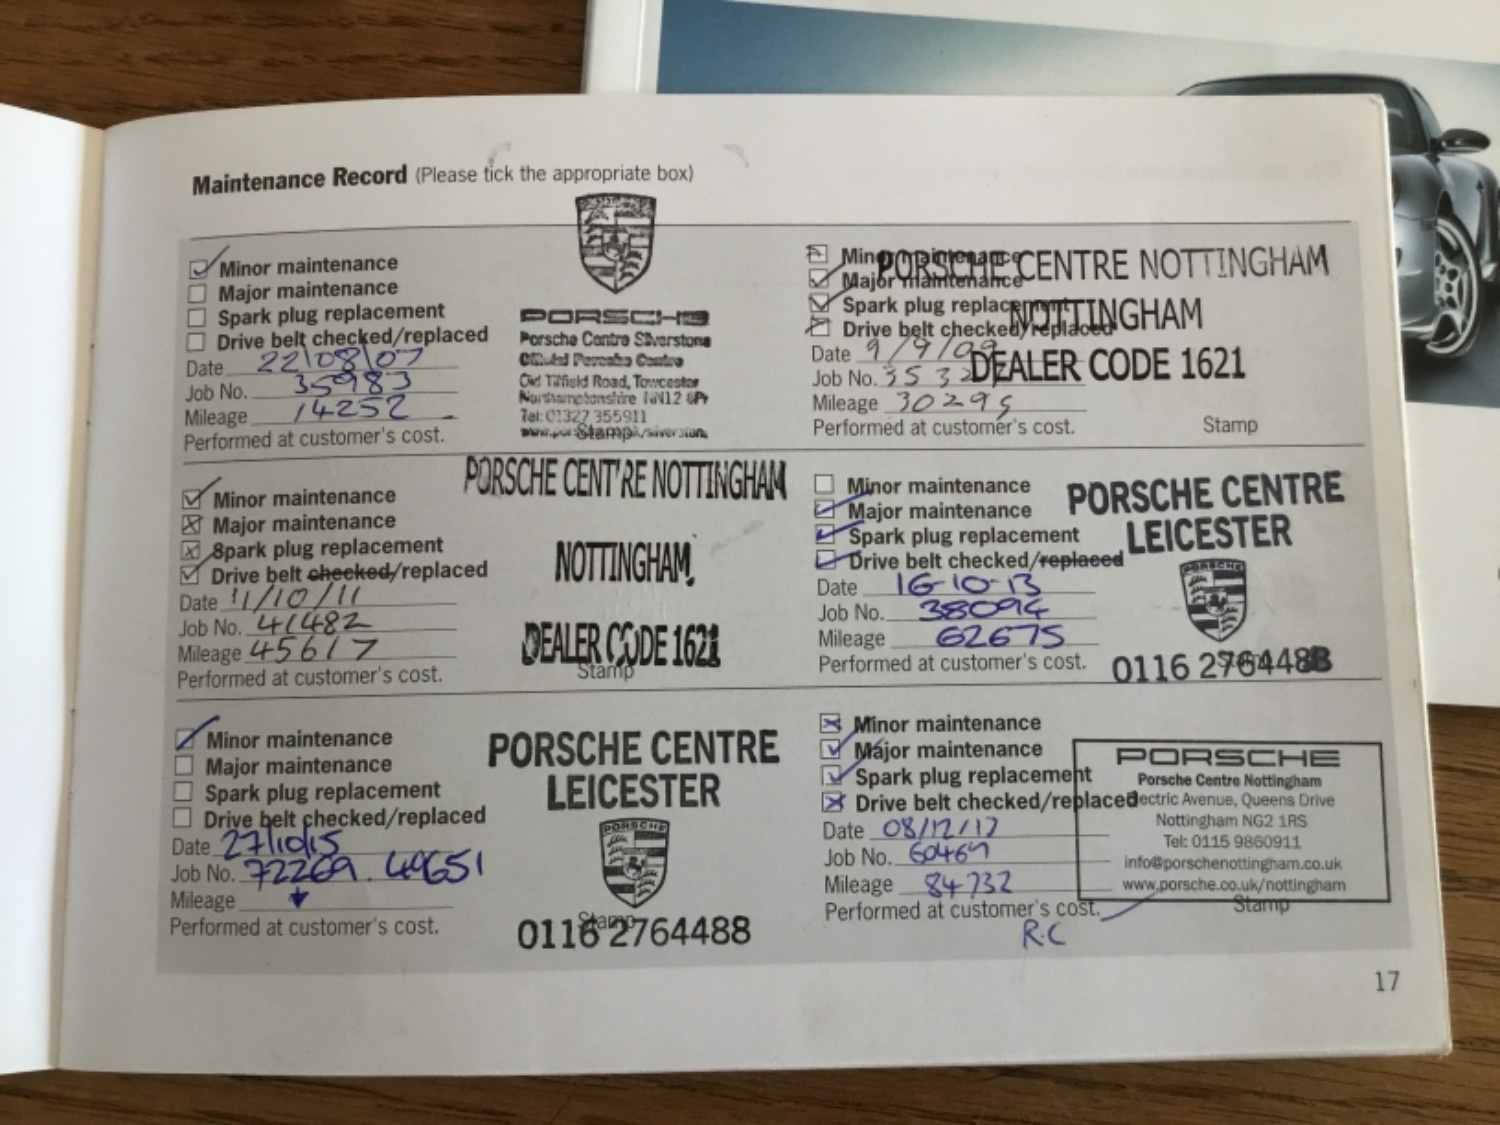 Maintenance Record (Please tick the appropriate box)
Minor maintenance
Major maintenance
Spark plug replacement
Drive belt checked/replaced
Date 22/08/07
Job No. 35983
Mileage 14252
Performed at customer's cost.
PORSCHE
Porsche Centre Silverstone
Official Porsche Centre
Old Tiffield Road, Towcester
Northamptonshire NN12 6PF
Tel: 01327 355911
Stamp
Minor maintenance
Major maintenance
Spark plug replacement
Drive belt checked/replaced
Date 9/9/09
Job No.
Mileage 30295
Performed at customer's cost.
PORSCHE CENTRE NOTTINGHAM
NOTTINGHAM
DEALER CODE 1621
Stamp
Minor maintenance
Major maintenance
Spark plug replacement
Drive belt checked/replaced
Date 11/10/11
Job No. 41482
Mileage 45617
Performed at customer's cost.
PORSCHE CENTRE NOTTINGHAM
NOTTINGHAM,
DEALER CODE 1621
Stamp
Minor maintenance
Major maintenance
Spark plug replacement
Drive belt checked/replaced
Date 16-10-13
Job No. 38094
Mileage 62675
Performed at customer's cost.
PORSCHE CENTRE
LEICESTER
PORSCHE
0116 2764488
Stamp
Minor maintenance
Major maintenance
Spark plug replacement
Drive belt checked/replaced
Date 27/10/15
Job No. 72269.
Mileage
Performed at customer's cost.
PORSCHE CENTRE
LEICESTER
PORSCHE
Stamp
0116 2764488
Minor maintenance
Major maintenance
Spark plug replacement
Drive belt checked/replaced
Date 08/12/17
Job No.
Mileage 84732
Performed at customer's cost.
R.C
PORSCHE
Porsche Centre Nottingham
Electric Avenue, Queens Drive
Nottingham NG2 1RS
Tel: 0115 9860911
info@porschenottingham.co.uk
www.porsche.co.uk/nottingham
Stamp
17